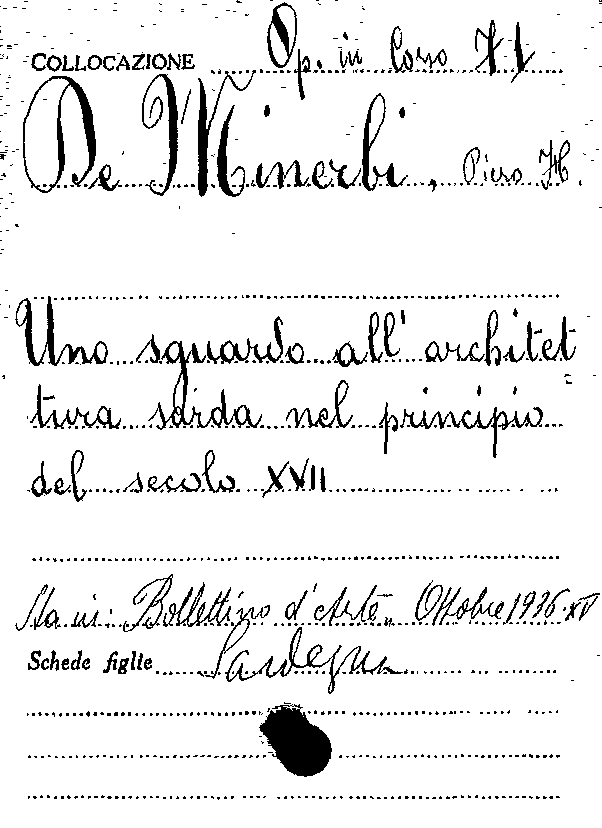 COLLOCAZIONE Op. in Corso 71
De Minerbi, Piero H.
Uno sguardo all' architet
tura sarda nel principio
del secolo XVII
Sta in: Bollettino d'Arte„ Ottobre 1936-XV
Schede figlie Sardegna